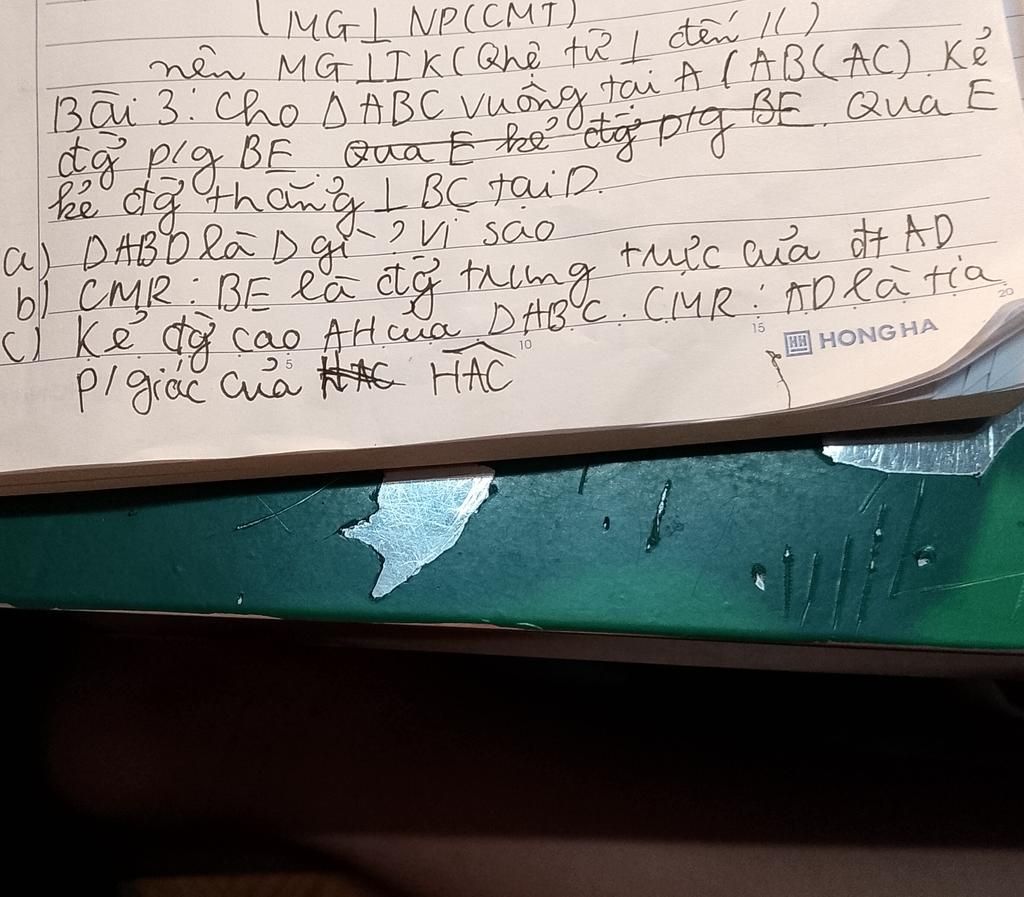 ( MG⊥ NP(CMT)
nên MG⊥IK(Qhệ từ ⊥ đến //)
Bài 3: Cho ΔABC vuông tại A (AB<AC). Kẻ
đg̉ p/g BE Qua E kẻ đg̉ p/g BE. Qua E
kẻ đg̉ thẳng ⊥ BC tại D.
a) ΔABD là Δ gì? Vì sao
b) CMR: BE là đg̉ trung trực của đt AD
c) Kẻ đg̉ cao AH của ΔABC. CMR: AD là tia
p/giác của HAC HAC
5 10 15 20
HH HONG HA